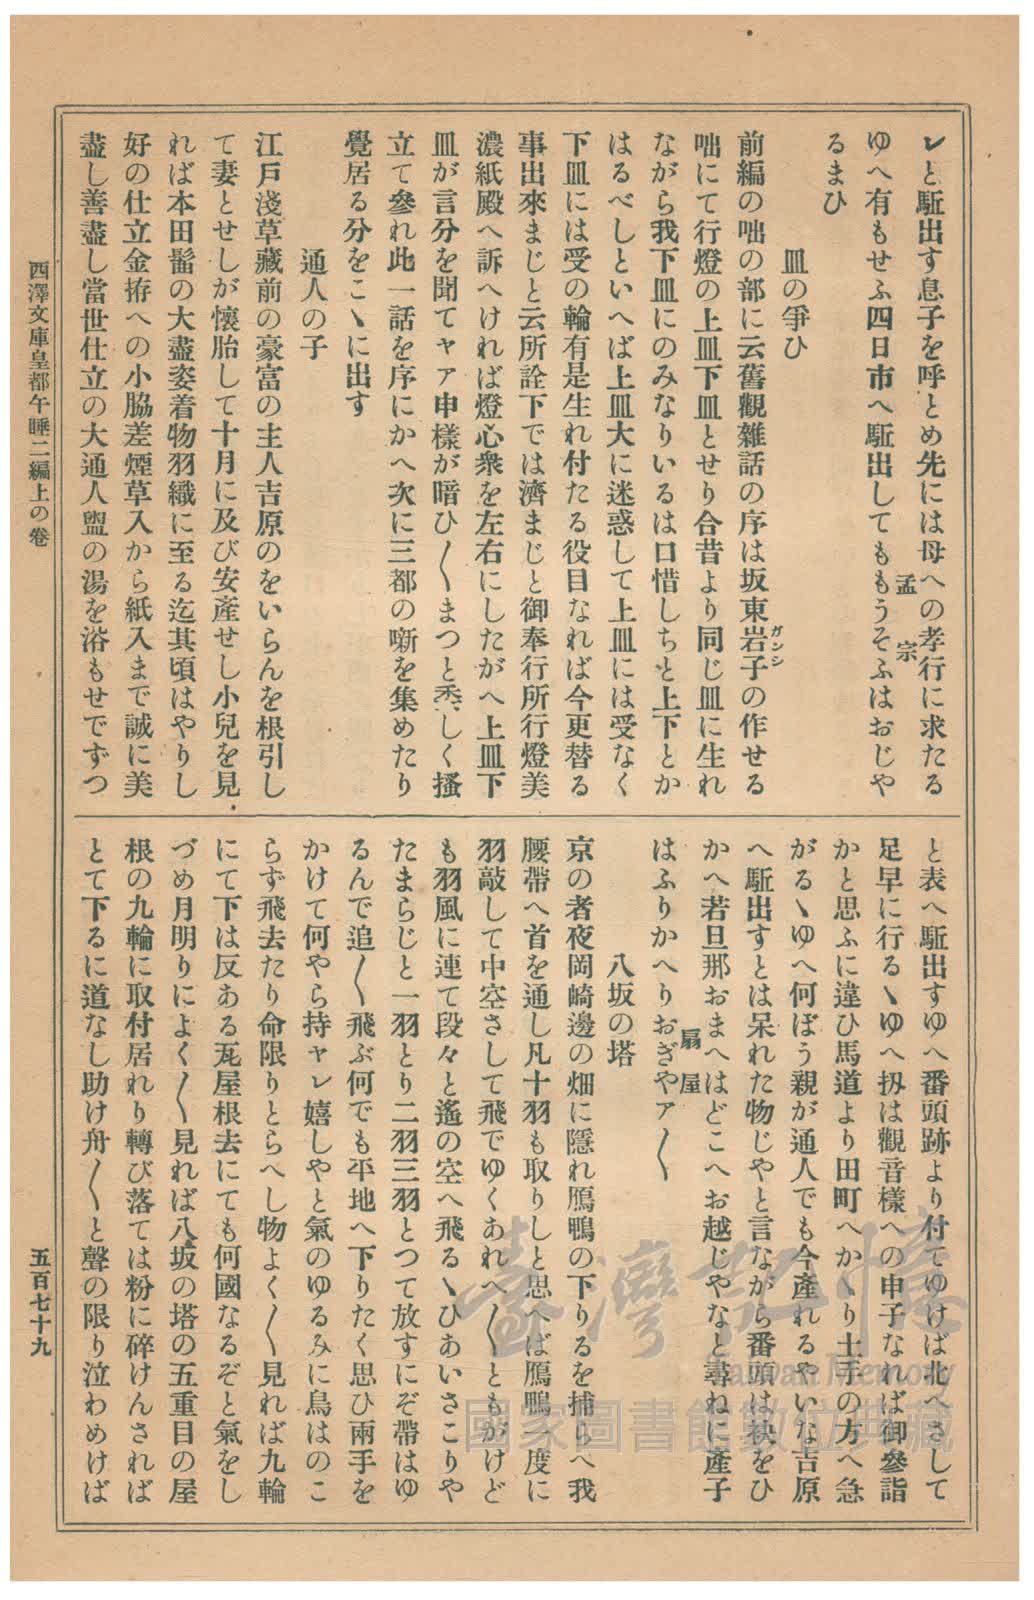 レと駈出す息子を呼とめ先には母への孝行に求たる
ゆへ有もせふ四日市へ駈出してももうそふはおじや
孟宗
るまひ
皿の爭ひ
前編の咄の部に云舊觀雜話の序は坂東岩子の作せる
ガンシ
咄にて行燈の上皿下皿とせり合昔より同じ皿に生れ
ながら我下皿にのみなりいるは口惜しちと上下とか
はるべしといへば上皿大に迷惑して上皿には受なく
下皿には受の輪有是生れ付たる役目なれば今更替る
事出來まじと云所詮下では濟まじと御奉行所行燈美
濃紙殿へ訴へければ燈心衆を左右にしたがへ上皿下
皿が言分を聞てャア申樣が暗ひ〱まつと委しく搔
立て參れ此一話を序にかへ次に三都の噺を集めたり
覺居る分をこゝに出す
通人の子
江戸淺草藏前の豪富の主人吉原のをいらんを根引し
て妻とせしが懷胎して十月に及び安産せし小兒を見
れば本田髷の大盡姿着物羽織に至る迄其頃はやりし
好の仕立金拵への小脇差煙草入から紙入まで誠に美
盡し善盡し當世仕立の大通人盥の湯を浴もせでずつ
と表へ駈出すゆへ番頭跡より付てゆけば北へさして
足早に行るゝゆへ扨は觀音樣への申子なれば御參詣
かと思ふに違ひ馬道より田町へかゝり土手の方へ急
がるゝゆへ何ぼう親が通人でも今産れるやいな吉原
へ駈出すとは呆れた物じやと言ながら番頭は袂をひ
かへ若旦那おまへはどこへお越じやなと尋ねに產子
はふりかへりおぎやア〱
扇屋
八坂の塔
京の者夜岡崎邊の畑に隱れ鴈鴨の下りるを捕らへ我
腰帶へ首を通し凡十羽も取りしと思へば鴈鴨一度に
羽敲して中空さして飛でゆくあれへ〱ともがけど
も羽風に連て段々と遙の空へ飛るゝひあいさこりや
たまらじと一羽とり二羽三羽とつて放すにぞ帶はゆ
るんで追〱飛ぶ何でも平地へ下りたく思ひ兩手を
かけて何やら持ャレ嬉しやと氣のゆるみに鳥はのこ
らず飛去たり命限りとらへし物よく〱見れば九輪
にて下は反ある瓦屋根去にても何國なるぞと氣をし
づめ月明りによく〱見れば八坂の塔の五重目の屋
根の九輪に取付居れり轉び落ては粉に碎けんされば
とて下るに道なし助け舟〱と聲の限り泣わめけば
西澤文庫皇都午睡二編上の卷
五百七十九
臺灣記憶
Taiwan Memory
國家圖書館數位典藏